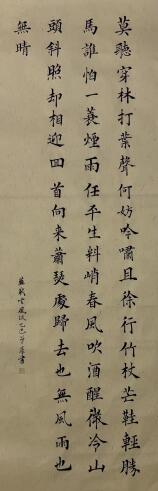 莫聽穿林打葉聲何妨吟嘯且徐行竹杖芒鞋輕勝
馬誰怕一蓑煙雨任平生料峭春風吹酒醒微冷山
頭斜照却相迎回首向来蕭瑟處歸去也無風雨也
無晴
蘇軾定風波乙巳